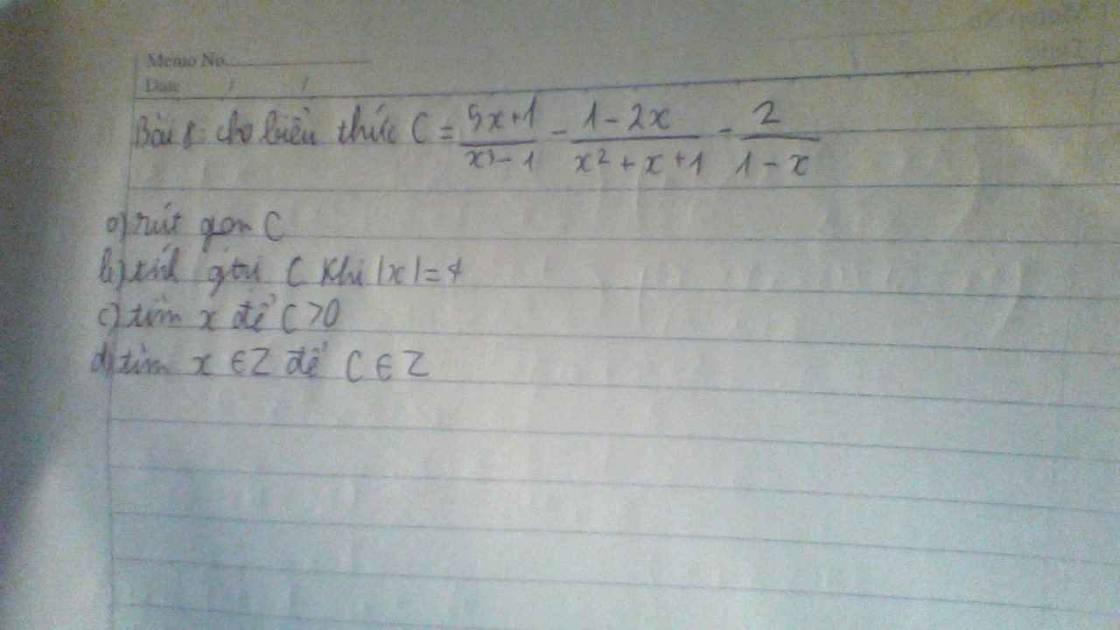 Memo No.
Date / /
Bài 8: cho biểu thức C = \frac{5x+1}{x^3-1} - \frac{1-2x}{x^2+x+1} - \frac{2}{1-x}
a) rút gọn C
b) tính gtrị C khi |x| = 4
c) tìm x để C > 0
d) tìm x ∈ Z để C ∈ Z